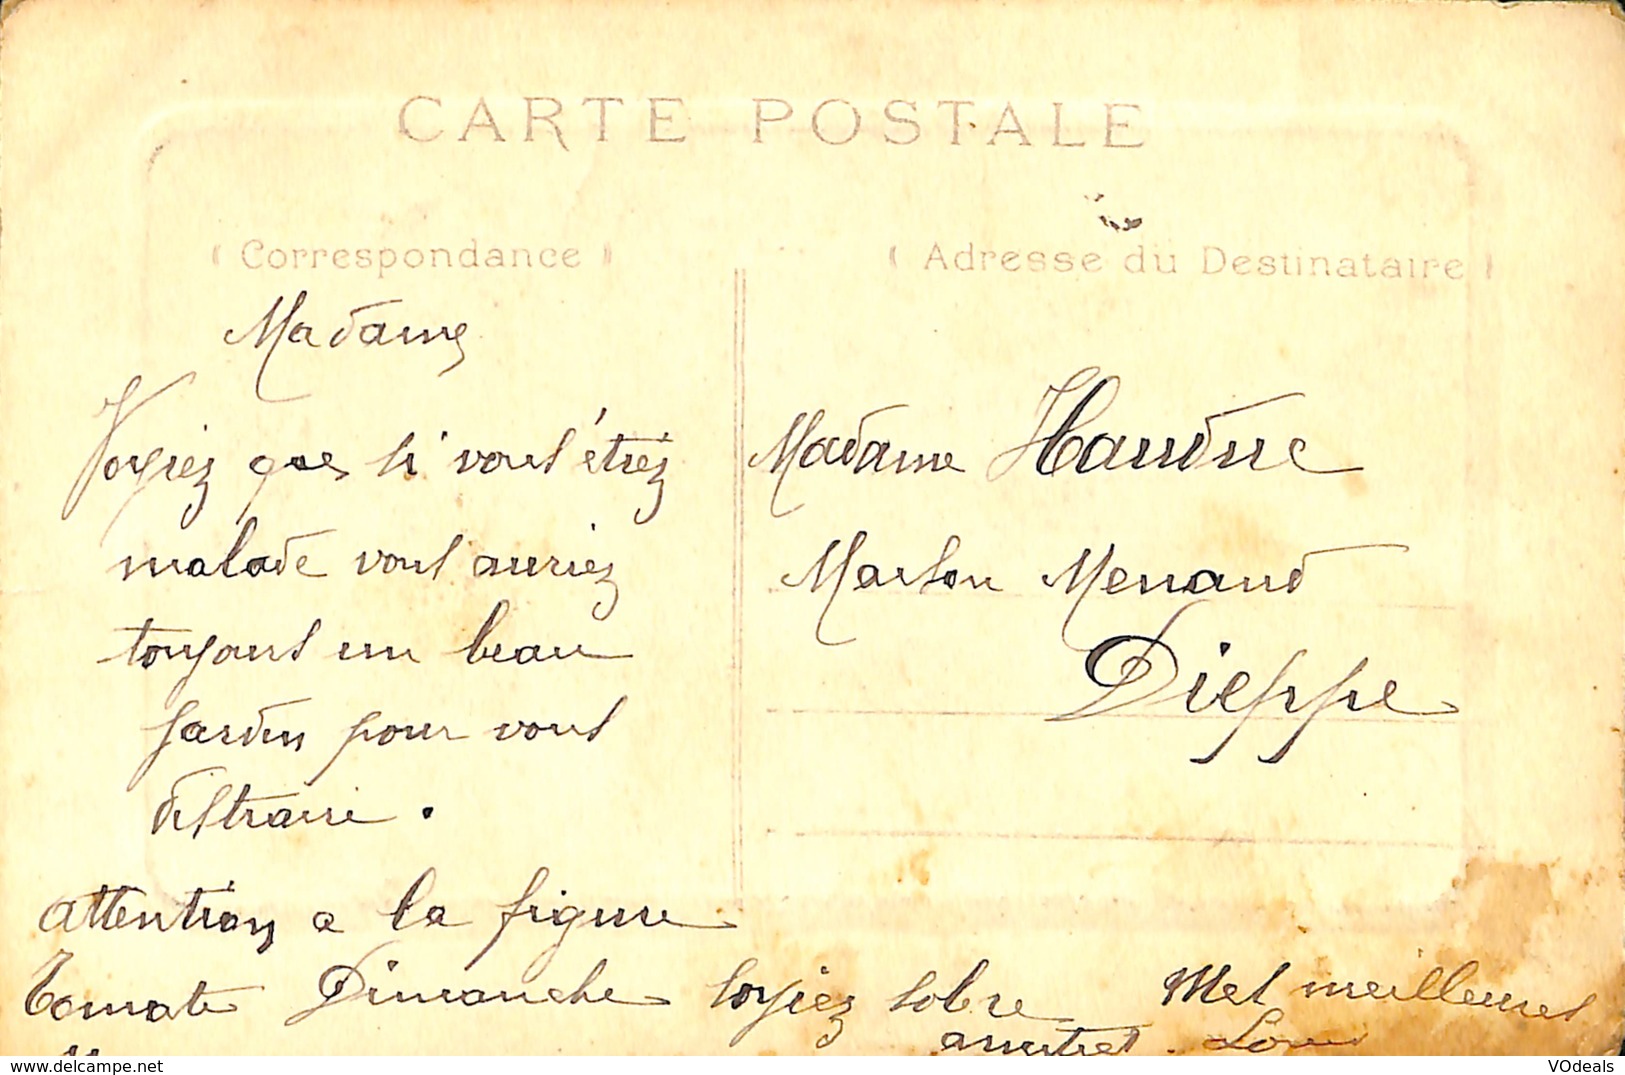 CARTE POSTALE
Correspondance
Adresse du Destinataire
Madame
Voyiez que si vous étiez
malade vous auriez
toujours un beau
jardin pour vous
distraire.
attention a la figure
Tomate Dimanche soyiez sobre
Mes meilleures
amitiés. Louis
Madame
Maison Menand
Dieppe
www.delcampe.net
VOdeals